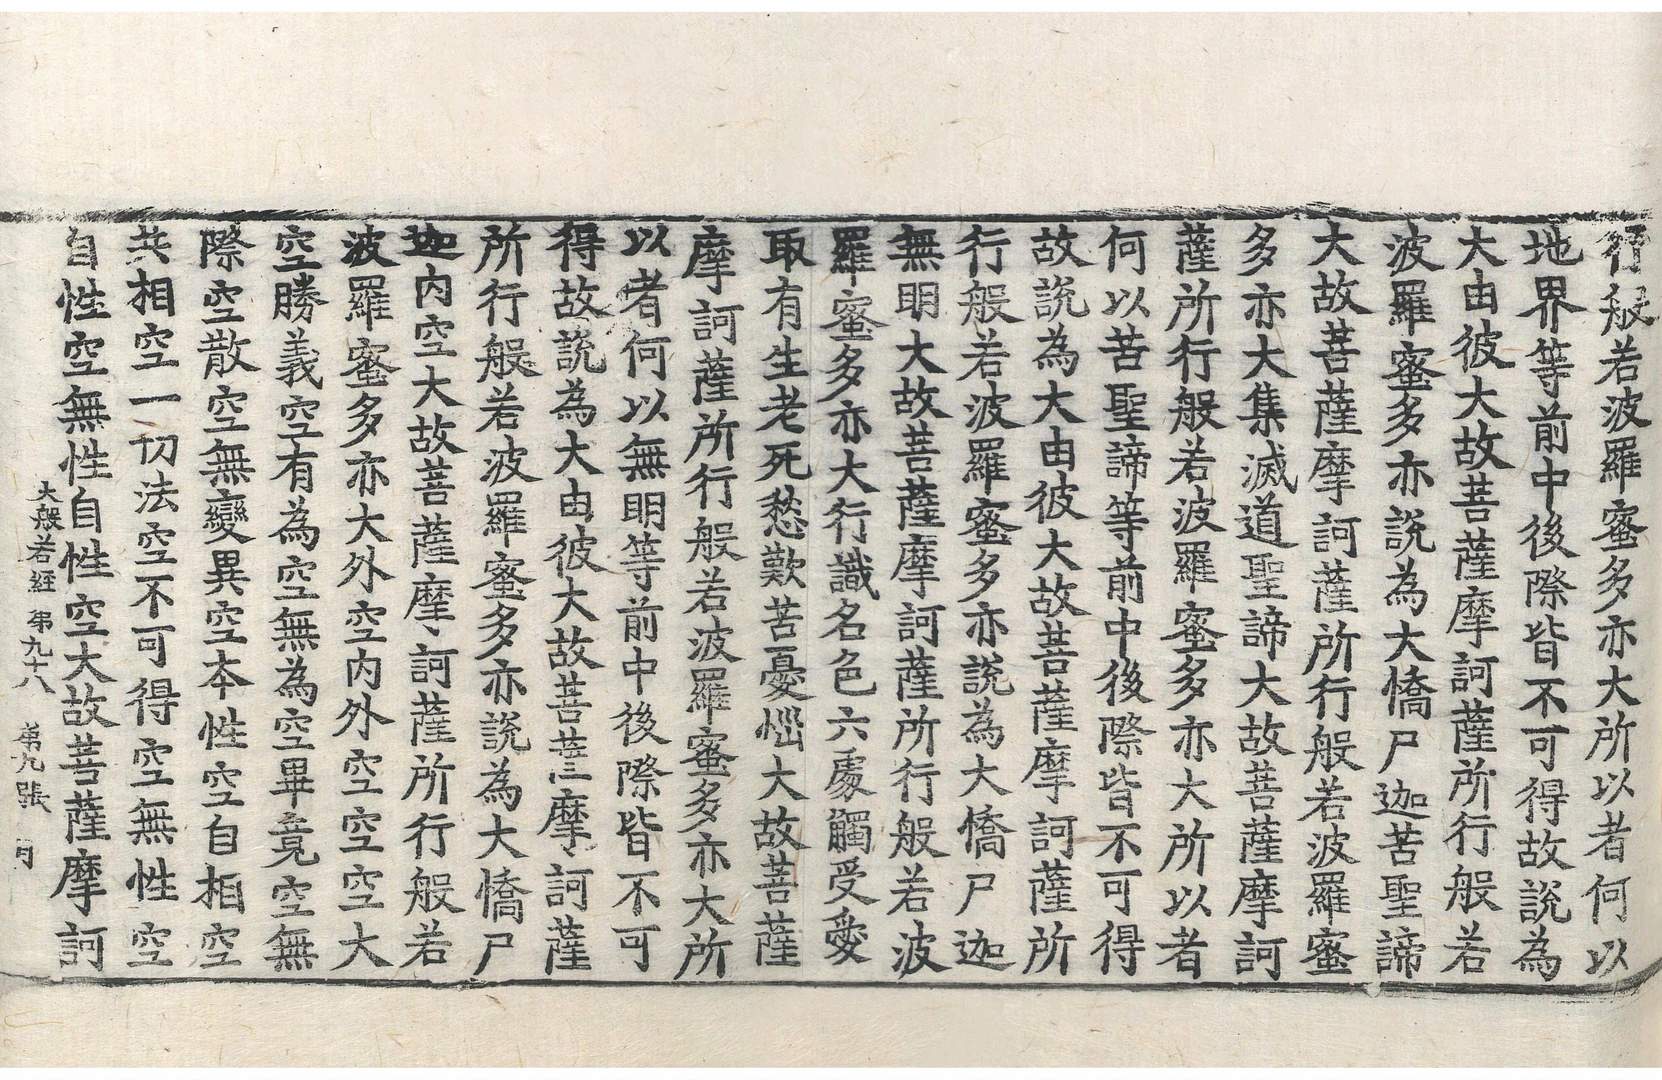 行般若波羅蜜多亦大所以者何以
地界等前中後際皆不可得故說為
大由彼大故菩薩摩訶薩所行般若
波羅蜜多亦說為大憍尸迦苦聖諦
大故菩薩摩訶薩所行般若波羅蜜
多亦大集滅道聖諦大故菩薩摩訶
薩所行般若波羅蜜多亦大所以者
何以苦聖諦等前中後際皆不可得
故說為大由彼大故菩薩摩訶薩所
行般若波羅蜜多亦說為大憍尸迦
無明大故菩薩摩訶薩所行般若波
羅蜜多亦大行識名色六處觸受愛
取有生老死愁歎苦憂惱大故菩薩
摩訶薩所行般若波羅蜜多亦大所
以者何以無明等前中後際皆不可
得故說為大由彼大故菩薩摩訶薩
所行般若波羅蜜多亦說為大憍尸
迦內空大故菩薩摩訶薩所行般若
波羅蜜多亦大外空內外空空空大
空勝義空有為空無為空畢竟空無
際空散空無變異空本性空自相空
共相空一切法空不可得空無性空
自性空無性自性空大故菩薩摩訶
大般若經 第九十八 第九張